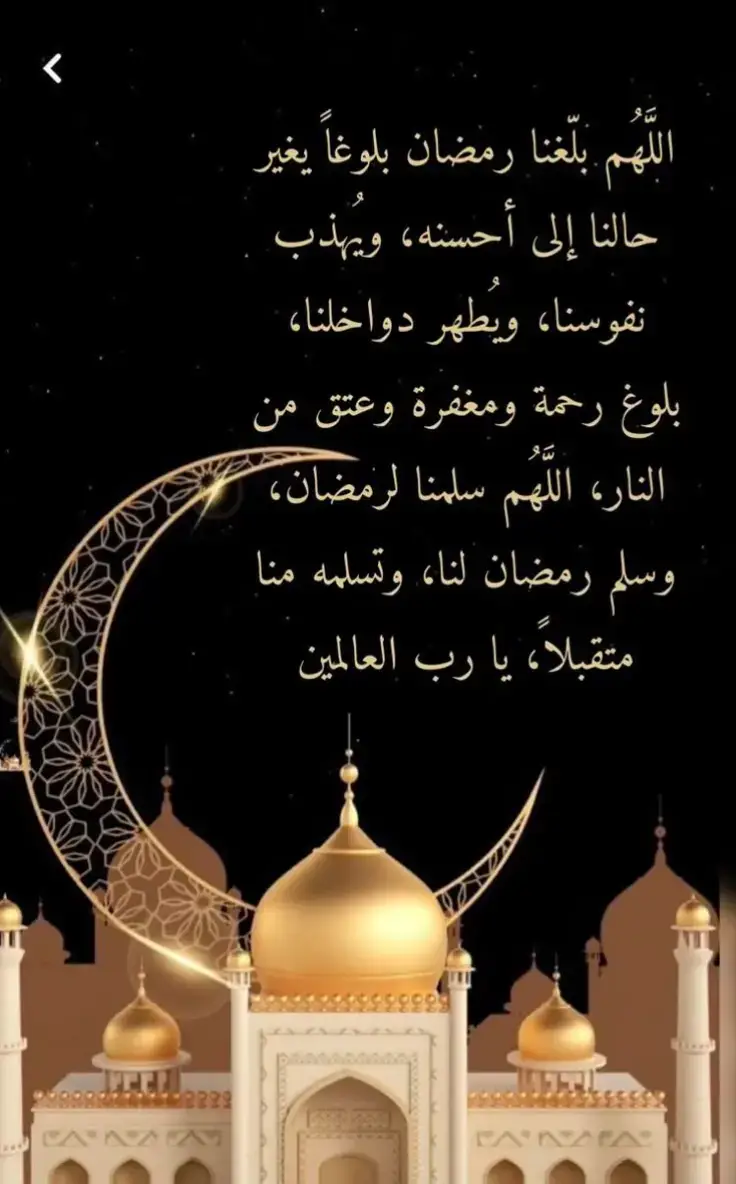 اللَّهُم بلّغنا رمضان بلوغاً يغير
حالنا إلى أحسنه، ويُهذب
نفوسنا، ويُطهر دواخلنا،
بلوغ رحمة ومغفرة وعتق من
النار، اللَّهُم سلمنا لرمضان،
وسلم رمضان لنا، وتسلمه منا
متقبلاً، يا رب العالمين